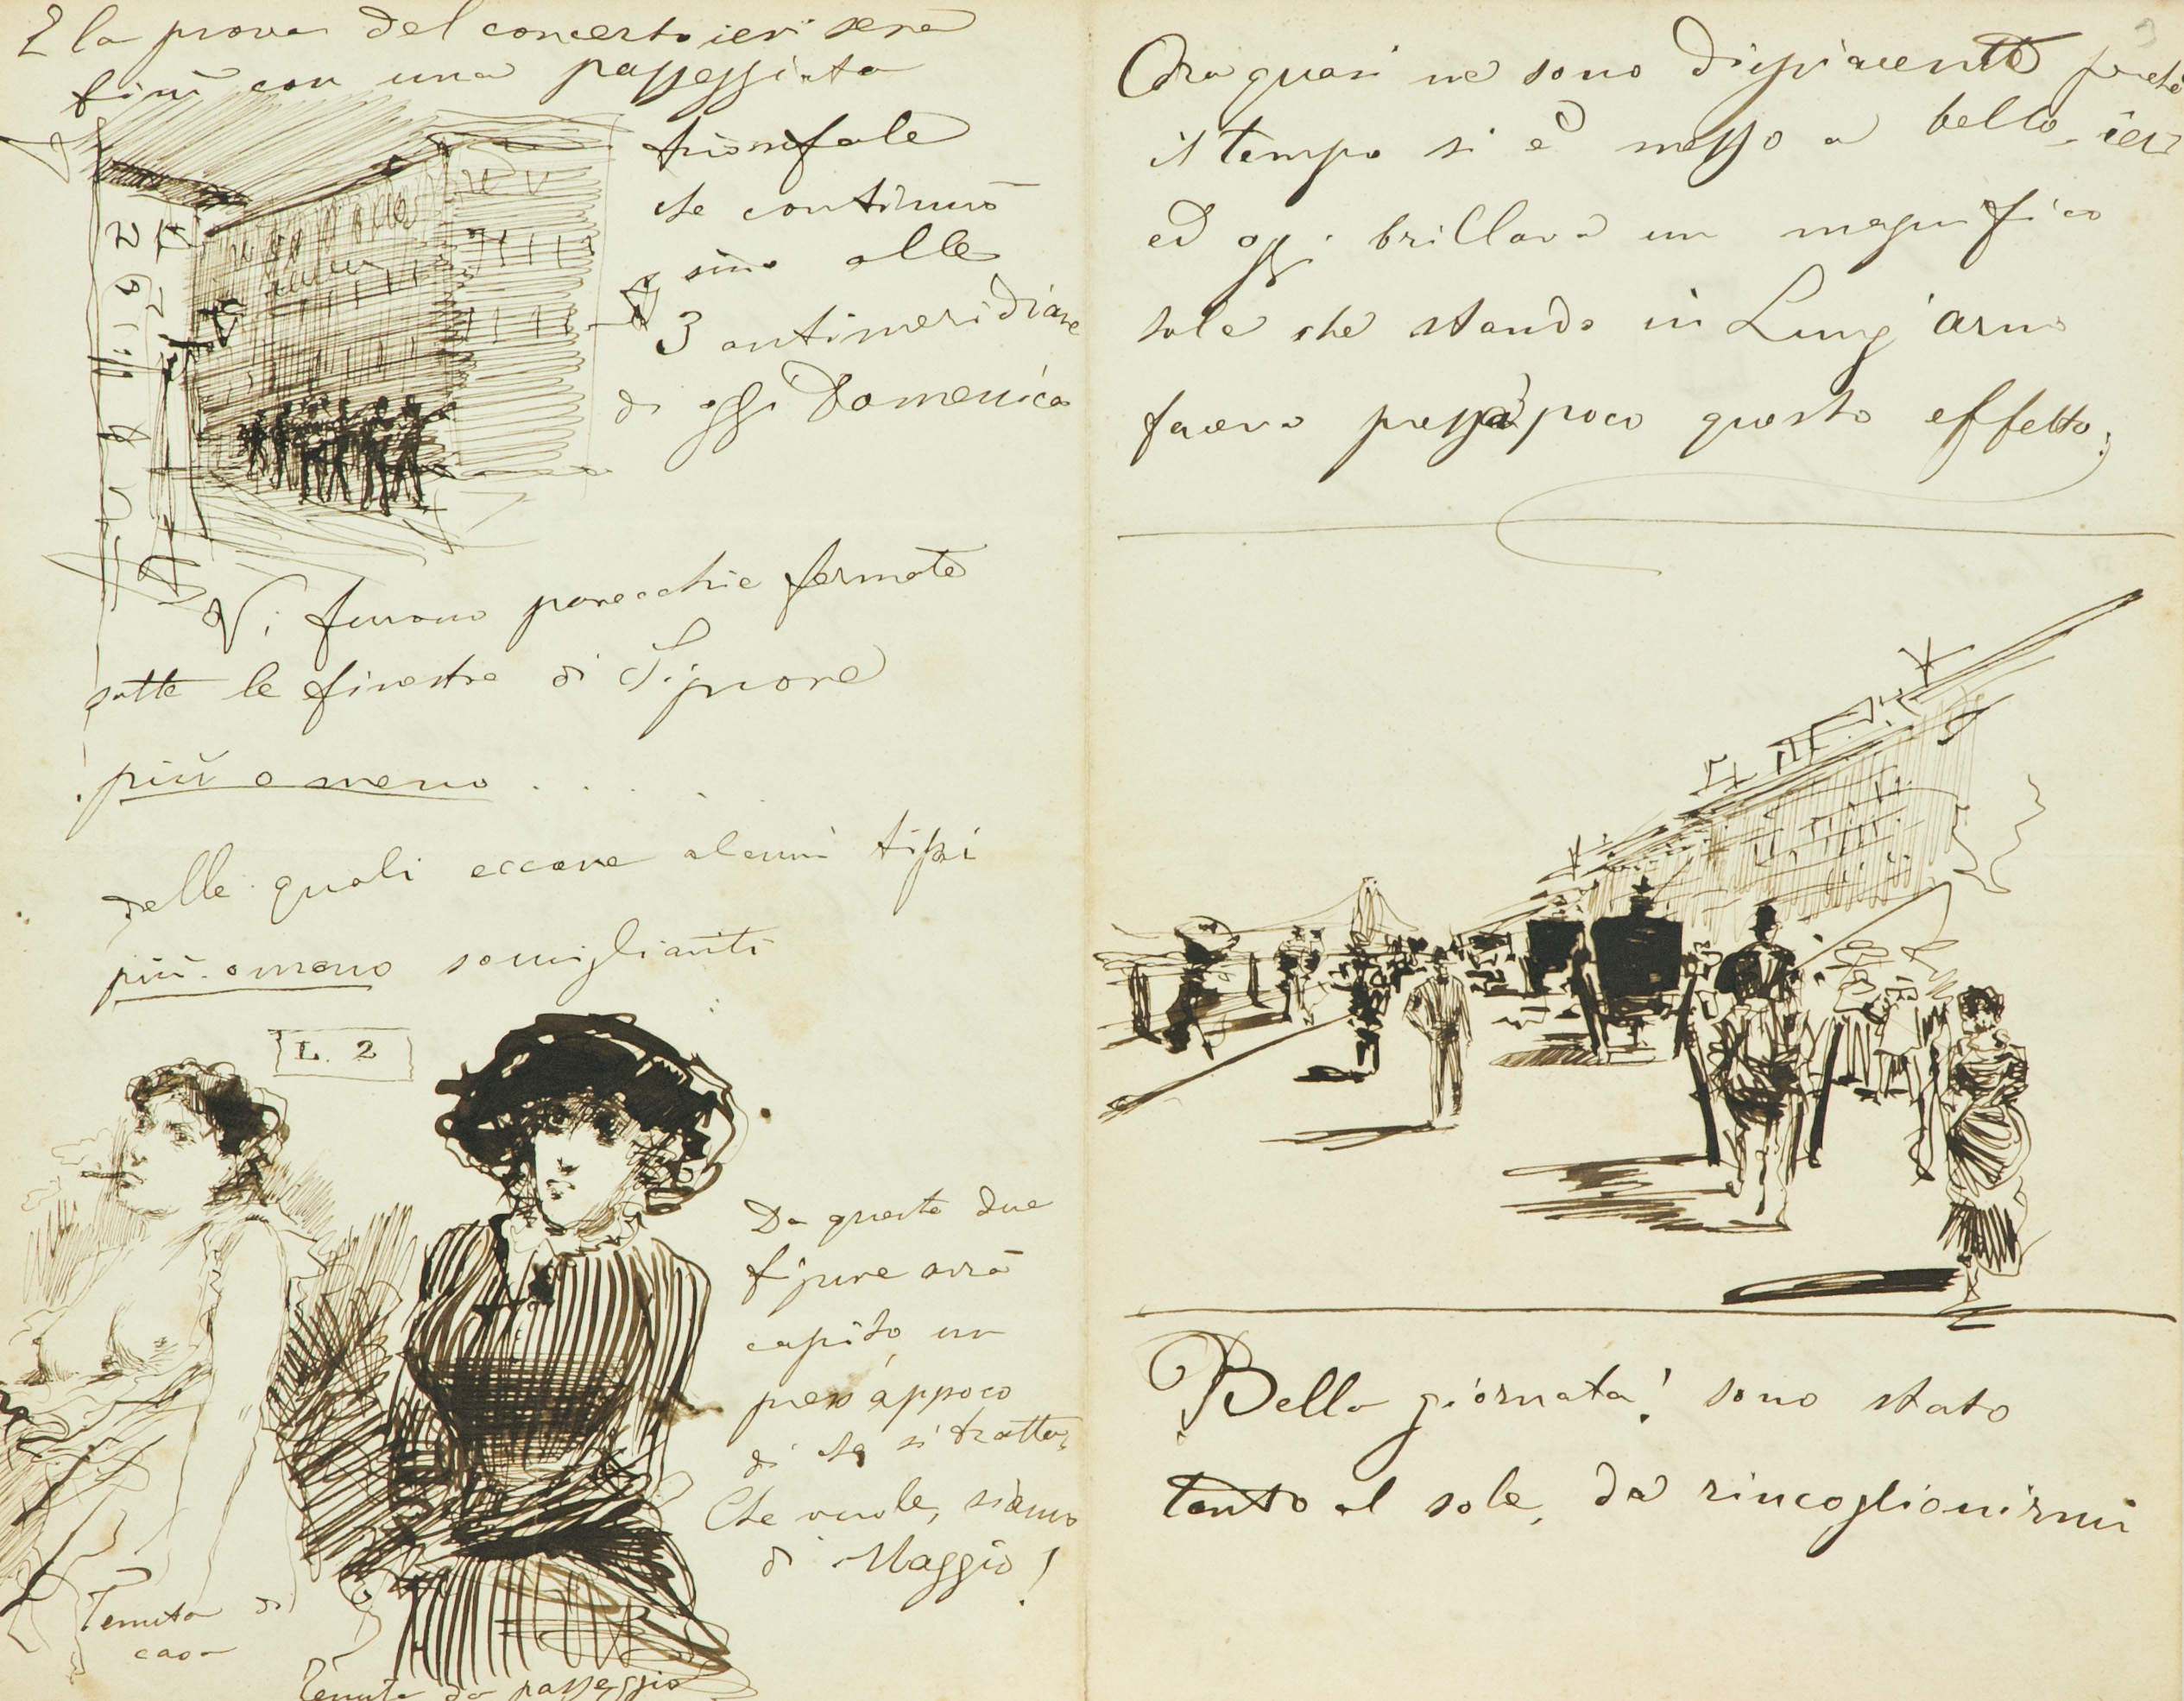 E la prova del concerto ieri sera
finì con una passeggiata
trionfale
che continuò
sino alle
3 antimeridiane
di oggi Domenica
Vi furono parecchie fermate
sotto le finestre di Signore
più o meno . . . . . .
delle quali eccone alcuni tipi
più o meno somiglianti
L. 2
Da queste due
figure avrà
capito un
press'appoco
di che si tratta.
Che vuole, siamo
di Maggio!
Tenuta di
casa
Tenuta da passeggio
Ora quasi ne sono dispiacente perchè
il tempo si è messo a bello, ieri
ed oggi brillava un magnifico
sole che stando in Lung'arno
faceva press'a poco questo effetto;
Bella giornata! sono stato
tanto al sole, da rincoglionirmi